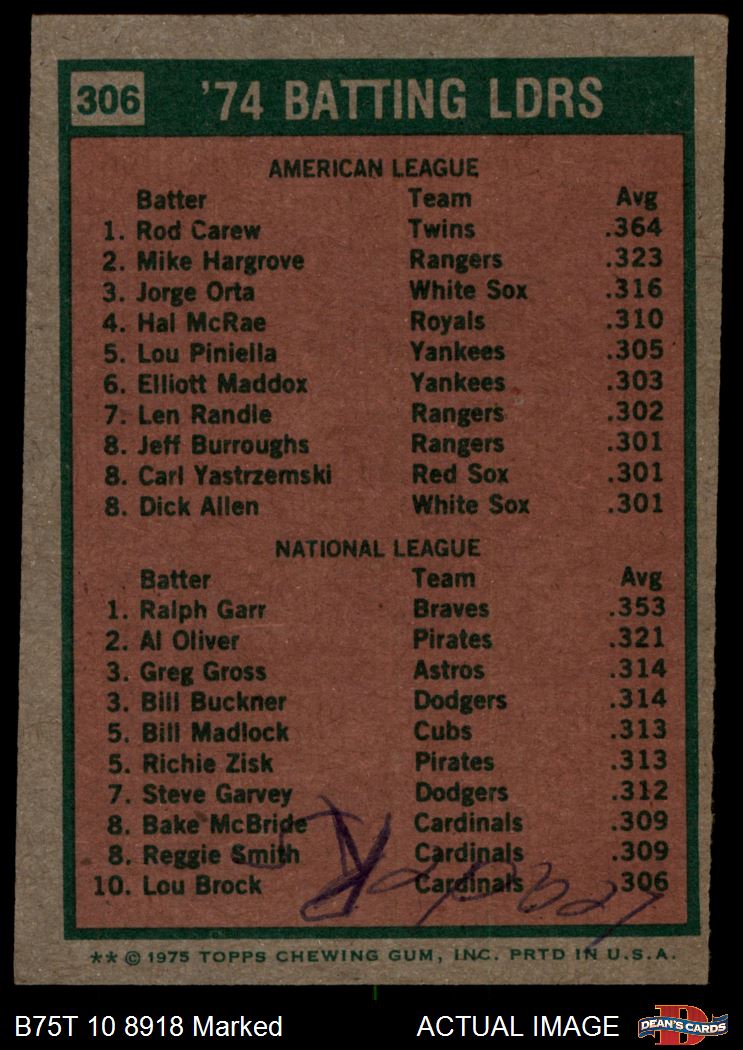 306 '74 BATTING LDRS
AMERICAN LEAGUE
Batter Team Avg
1. Rod Carew Twins .364
2. Mike Hargrove Rangers .323
3. Jorge Orta White Sox .316
4. Hal McRae Royals .310
5. Lou Piniella Yankees .305
6. Elliott Maddox Yankees .303
7. Len Randle Rangers .302
8. Jeff Burroughs Rangers .301
8. Carl Yastrzemski Red Sox .301
8. Dick Allen White Sox .301
NATIONAL LEAGUE
Batter Team Avg
1. Ralph Garr Braves .353
2. Al Oliver Pirates .321
3. Greg Gross Astros .314
3. Bill Buckner Dodgers .314
5. Bill Madlock Cubs .313
5. Richie Zisk Pirates .313
7. Steve Garvey Dodgers .312
8. Bake McBride Cardinals .309
8. Reggie Smith Cardinals .309
10. Lou Brock Cardinals .306
** © 1975 TOPPS CHEWING GUM, INC. PRTD IN U.S.A.
B75T 10 8918 Marked ACTUAL IMAGE DEAN'S CARDS